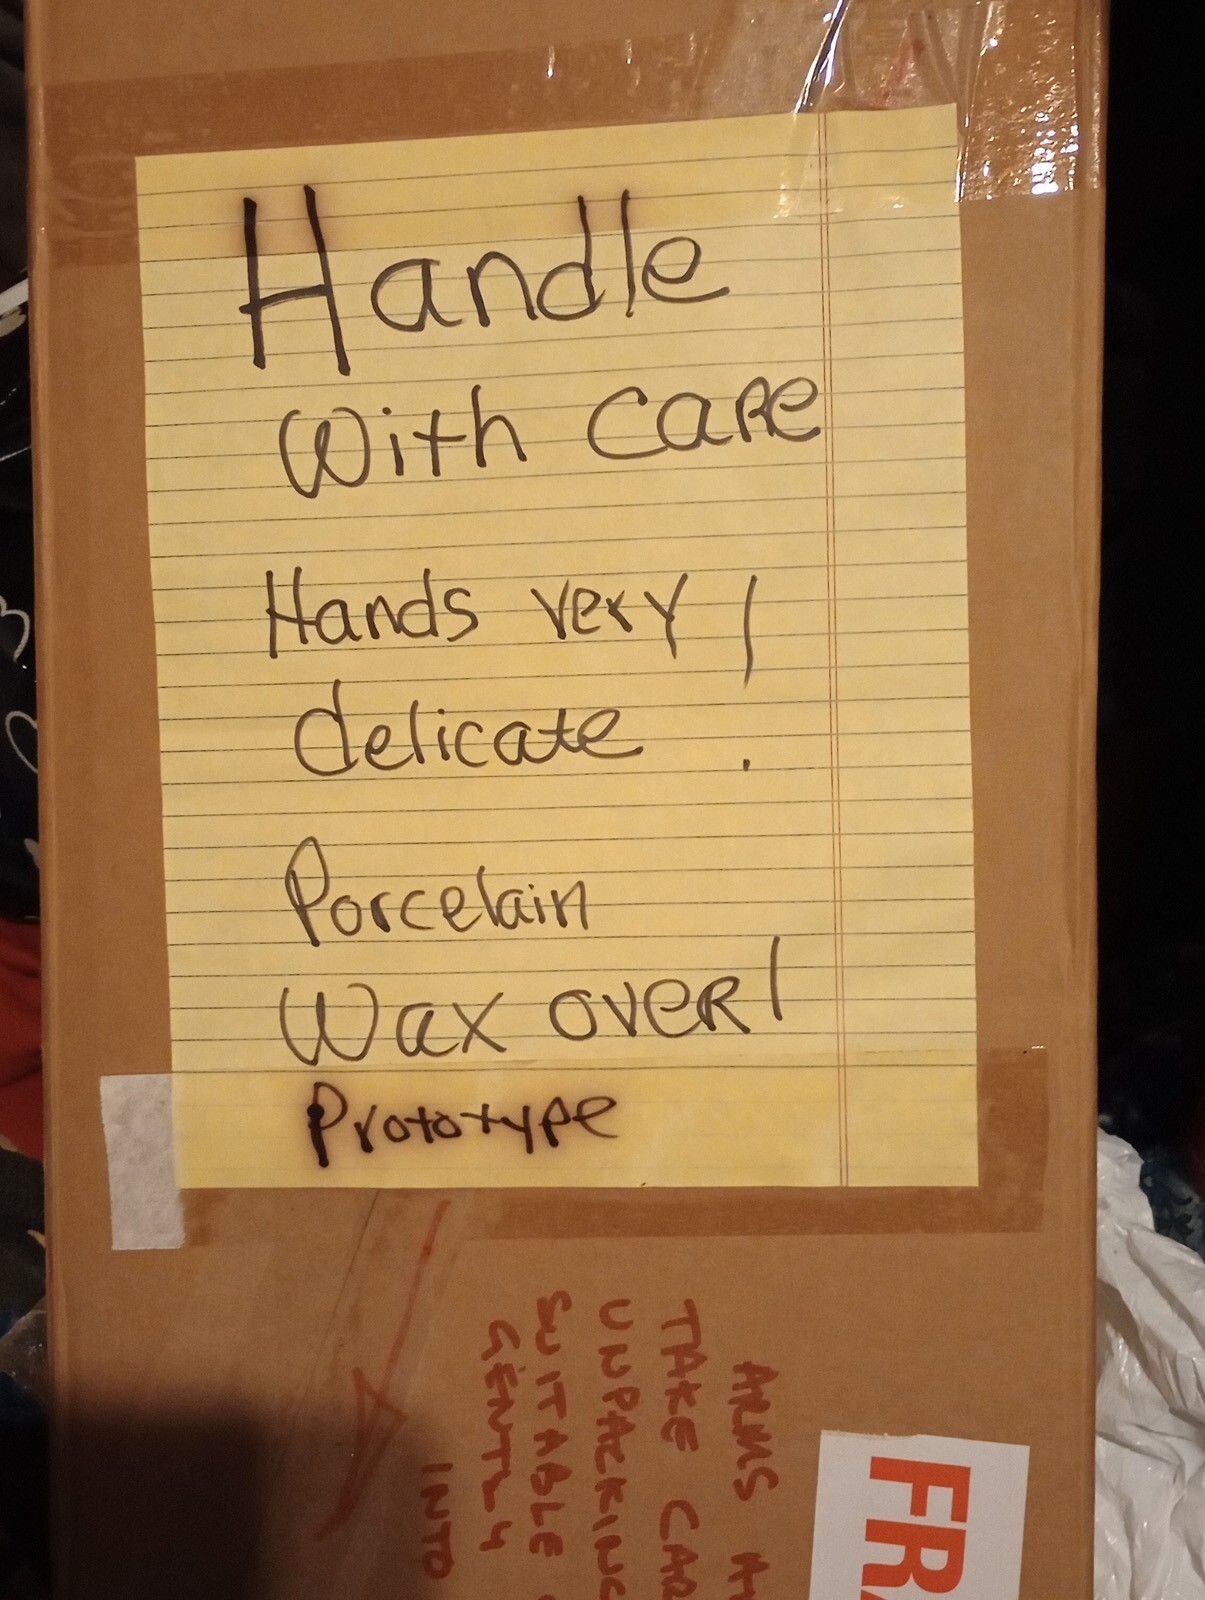 Handle
With Care
Hands very !
delicate
Porcelain
Wax over!
Prototype
ARMS
TAKE CAR
UNPACKING
SUITABLE
GENTLY
INTO
FRA